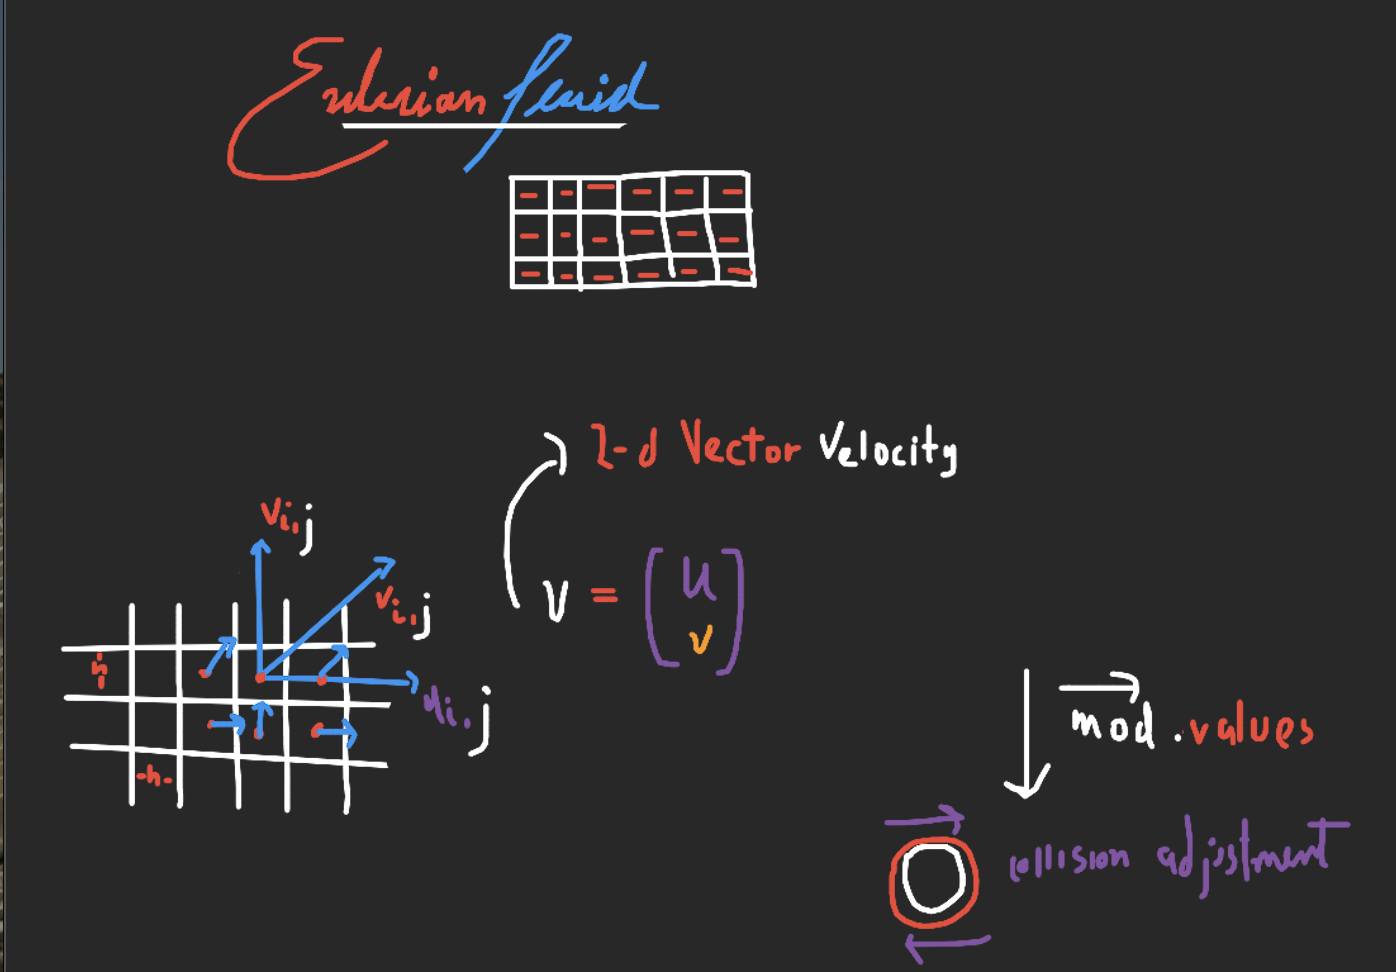 Eulerian fluid
2-d Vector Velocity
v i, j
v i, j
v = ( u
v )
h
u i, j
mod. values
-h-
collision adjustment